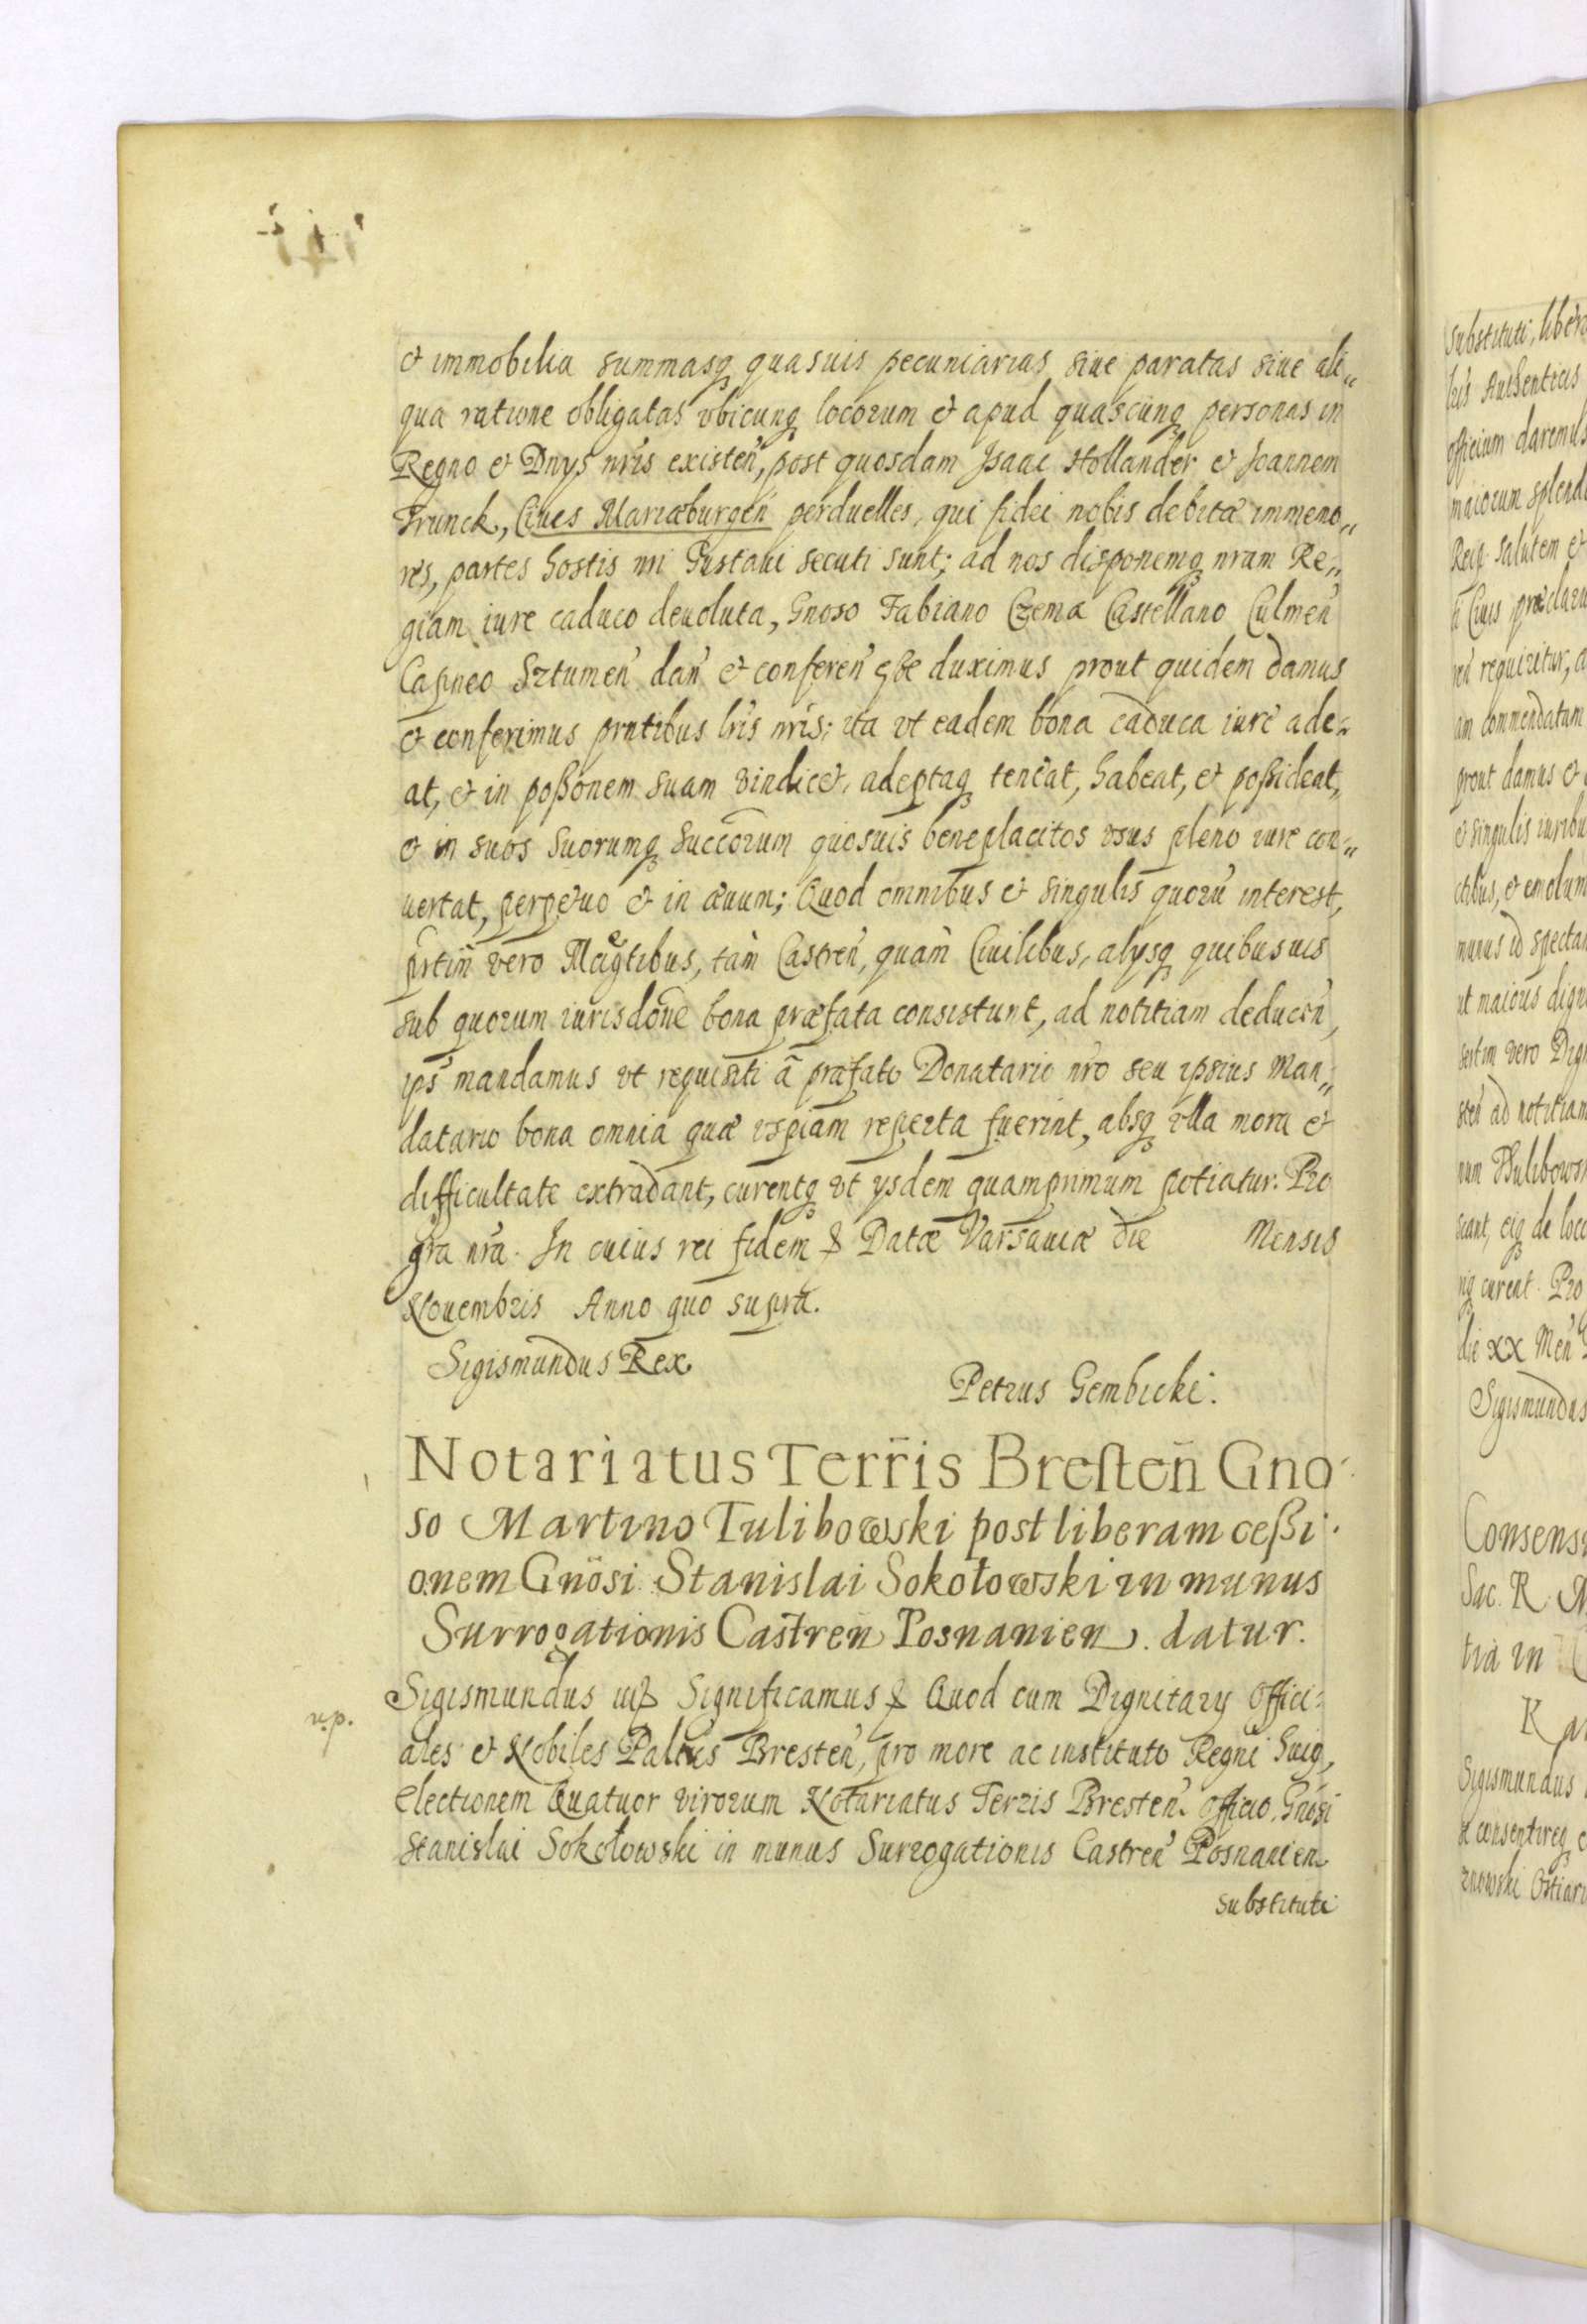 et immobilia summasq quasuis pecuniarias siue paratas siue ali„
qua ratione obligatas vbicunq locorum et apud quascunq personas in
Regno et Dnys nris existen, post quosdam Isaac Hollander et Joannem
Trunck, Ciues Mariæburgen perduelles, qui fidei nobis debitæ immemo„
res, partes hostis nri Gustaui secuti sunt; ad nos disponemq nram Re„
giam iure caduco deuoluta, Gnoso Fabiano Czema Castellano Culmen
Capneo Sztumen dan et conferen duximus prout quidem damus
et conferimus pntibus lris nris; ita vt eadem bona caduca iure ade„
at, et in poßonem suam vindicet, adeptaq teneat, habeat, et poßideat,
et in suos suorumq succorum quosuis beneplacitos vsus pleno iure con„
uertat, perpetuo et in æuum; Quod omnibus et singulis quorũ interest,
prtim vero Magtibus, tam Castren, quam Ciuilibus, alysq quibusuis
sub quorum iurisdone bona præfata consistunt, ad notitiam deducen,
ips mandamus vt requisiti a præfato Donatario nro seu ipsius Man„
datario bona omnia quæ vspiam reperta fuerint, absq vlla mora et
difficultate extradant, curentq vt ysdem quamprimum potiatur. Pro
gra nra. In cuius rei fidem & Datæ Varsauiæ die Mensis
Nouembris Anno quo supra.
Sigismundus Rex
Petrus Gembicki.
Notariatus Terris Bresten Gno
so Martino Tulibowski post liberam ceßi
onem Gnosi Stanislai Sokołowski in munus
Surrogationis Castren Posnanien. datur.
Sigismundus iij& Significamus & Quod cum Dignitary Offici
r.p.
ales et Nobiles Paltus Bresten, pro more ac instituto Regni huiq,
electionem Quatuor virorum Notariatus Terris Bresten officio, Gnosi
Stanislai Sokołowski in munus Surrogationis Castren Posnanien
substituti
substituti, liber
Authenticis
officium daremus
maiorum splend
Reip. salutem et
Ciuis præclaru
requiritur, a
am commendatum
prout damus et
et singulis iuribu
ctibus, et emolum
munus id spectan
vt maioris dign
vero Dign
sten ad notitiam
num Tulibows
de loco
curent. Pro
die xx Men
Sigismundus
Consens
Sac. R. M
tia in
Sigismundus
consentireq
Ostiari